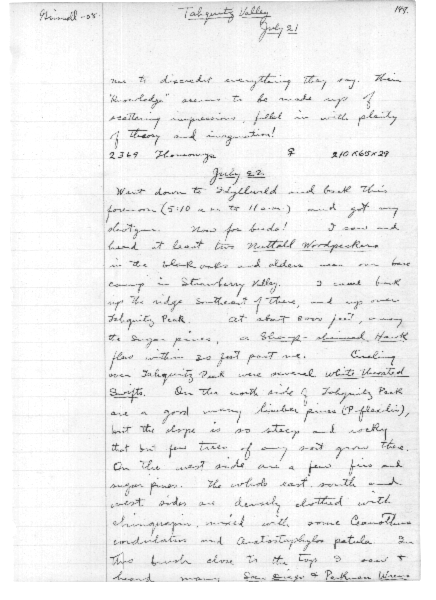 Grinnell - 08.
Tahquitz Valley
149.
July 21
me to discredit everything they say. Their
"knowledge" seems to be made up of
scattering impressions, filled in with plenty
of theory and imagination!
2369 Thomomys ♀ 210 X 65 X 29
July 22.
Went down to Idyllwild and back this
forenoon (5:10 a.m. to 11 a.m.) and got my
shotgun. Now for birds! I saw and
heard at least two Nuttall Woodpeckers
in the black oaks and alders near our base
camp in Strawberry Valley. I came back
up the ridge southeast of there, and up over
Tahquitz Peak. At about 8000 feet, among
the sugar pines, a Sharp-shinned Hawk
flew within 20 feet past me. Circling
over Tahquitz Peak were several White-throated
Swifts. On the north side of Tahquitz Peak
are a good many limber pines (P. flexilis),
but the slope is so steep and rocky
that but few trees of any sort grow there.
On the west side are a few firs and
sugar pines. The whole east, south and
west sides are densely clothed with
chinquapin, mixed with some Ceanothus
cordulatus and Arctostaphylos patula. In
this brush close to the top I saw &
heard many San Diego & Parkman Wrens